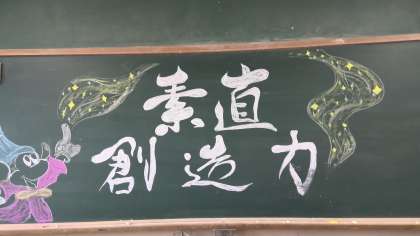 素直
創造力